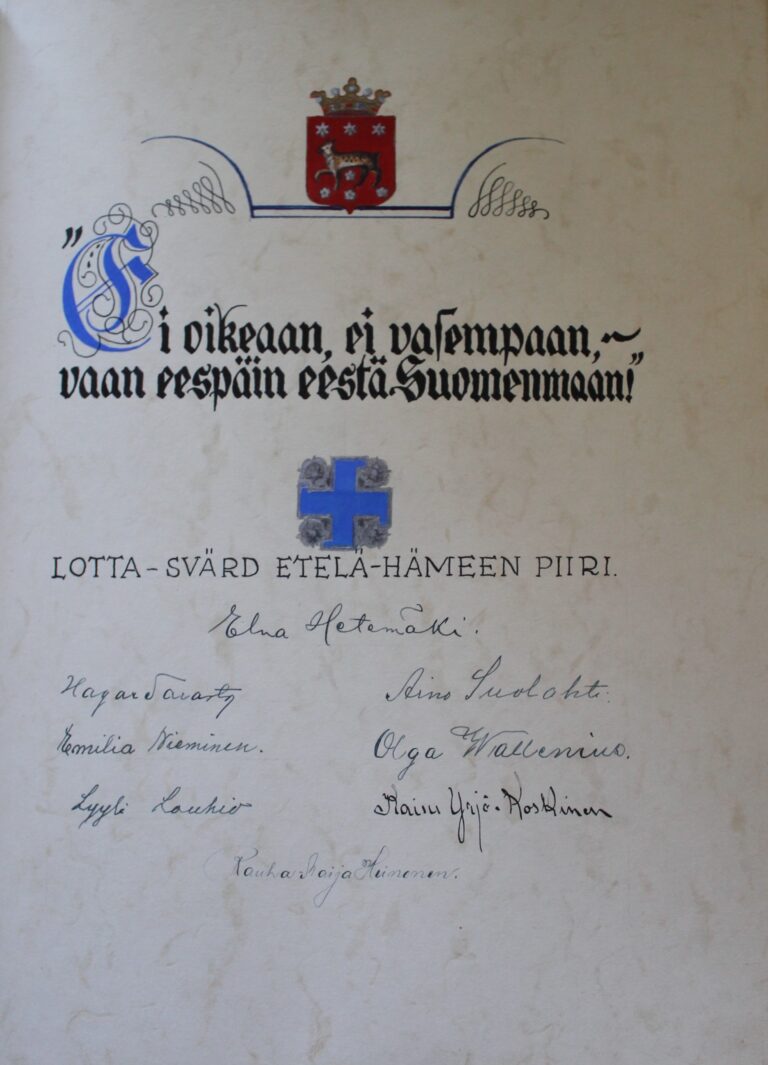 "Ei oikeaan, ei vasempaan,~
vaan eespäin eestä Suomenmaan!"
LOTTA-SVÄRD ETELÄ-HÄMEEN PIIRI.
Elna Hetemäki.
Hagar Tavasty Aino Suolahti.
Emilia Nieminen. Olga Wallenius.
Lyyli Louhio Kaisu Yrjö-Koskinen
Rauha Maija Heinonen.